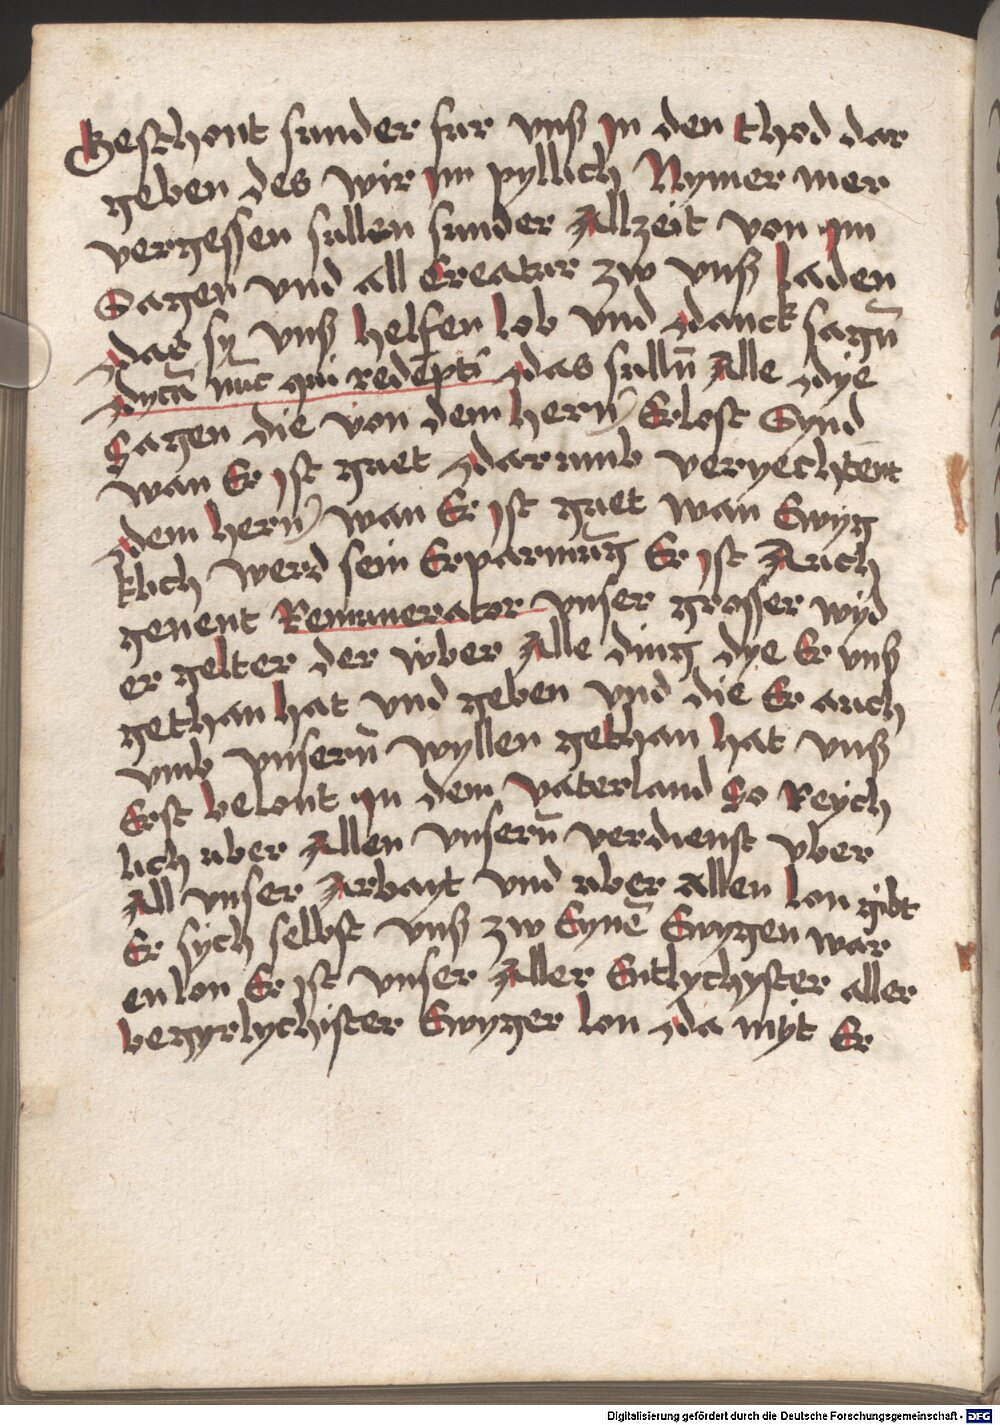 Geschont sunder fur vnß Jn den thod dar
geben des wir im pyllich Nymer mer
vergessen sullen sunder Allzeit von im
Sagen vnd all Creatur zw vnß laden
das sy vnß helfen lob vnd danck sagn̄
dycāt nūc qui redēpti das sulln̄ Alle dye
Sagen die von dem hern Erlost Synd
wan Er ist guet darumb veryechtent
dem hern wan Er ist guet wan Ewyg
klich werd sein Erparmūg Er ist Auch
genent Remunerator vnser grosser wyd
er gelter der vber Alle ding dye Er vnß
gethan hat vnd geben vnd die Er auch
vmb vnsern̄ wyllen gethan hat vnß
Erst belont in dem vaterland So Reych
lich uber Allen vnsern̄ verdienst vber
All vnser Arbayt vnd uber allen lon gibt
Er sych selbst vnß zw Eynē Ewygen war
en lon Er ist vnser Aller Entlychyster aller
begyrlychister Ewyger lon da myt Er
Digitalisierung gefördert durch die Deutsche Forschungsgemeinschaft - DFG